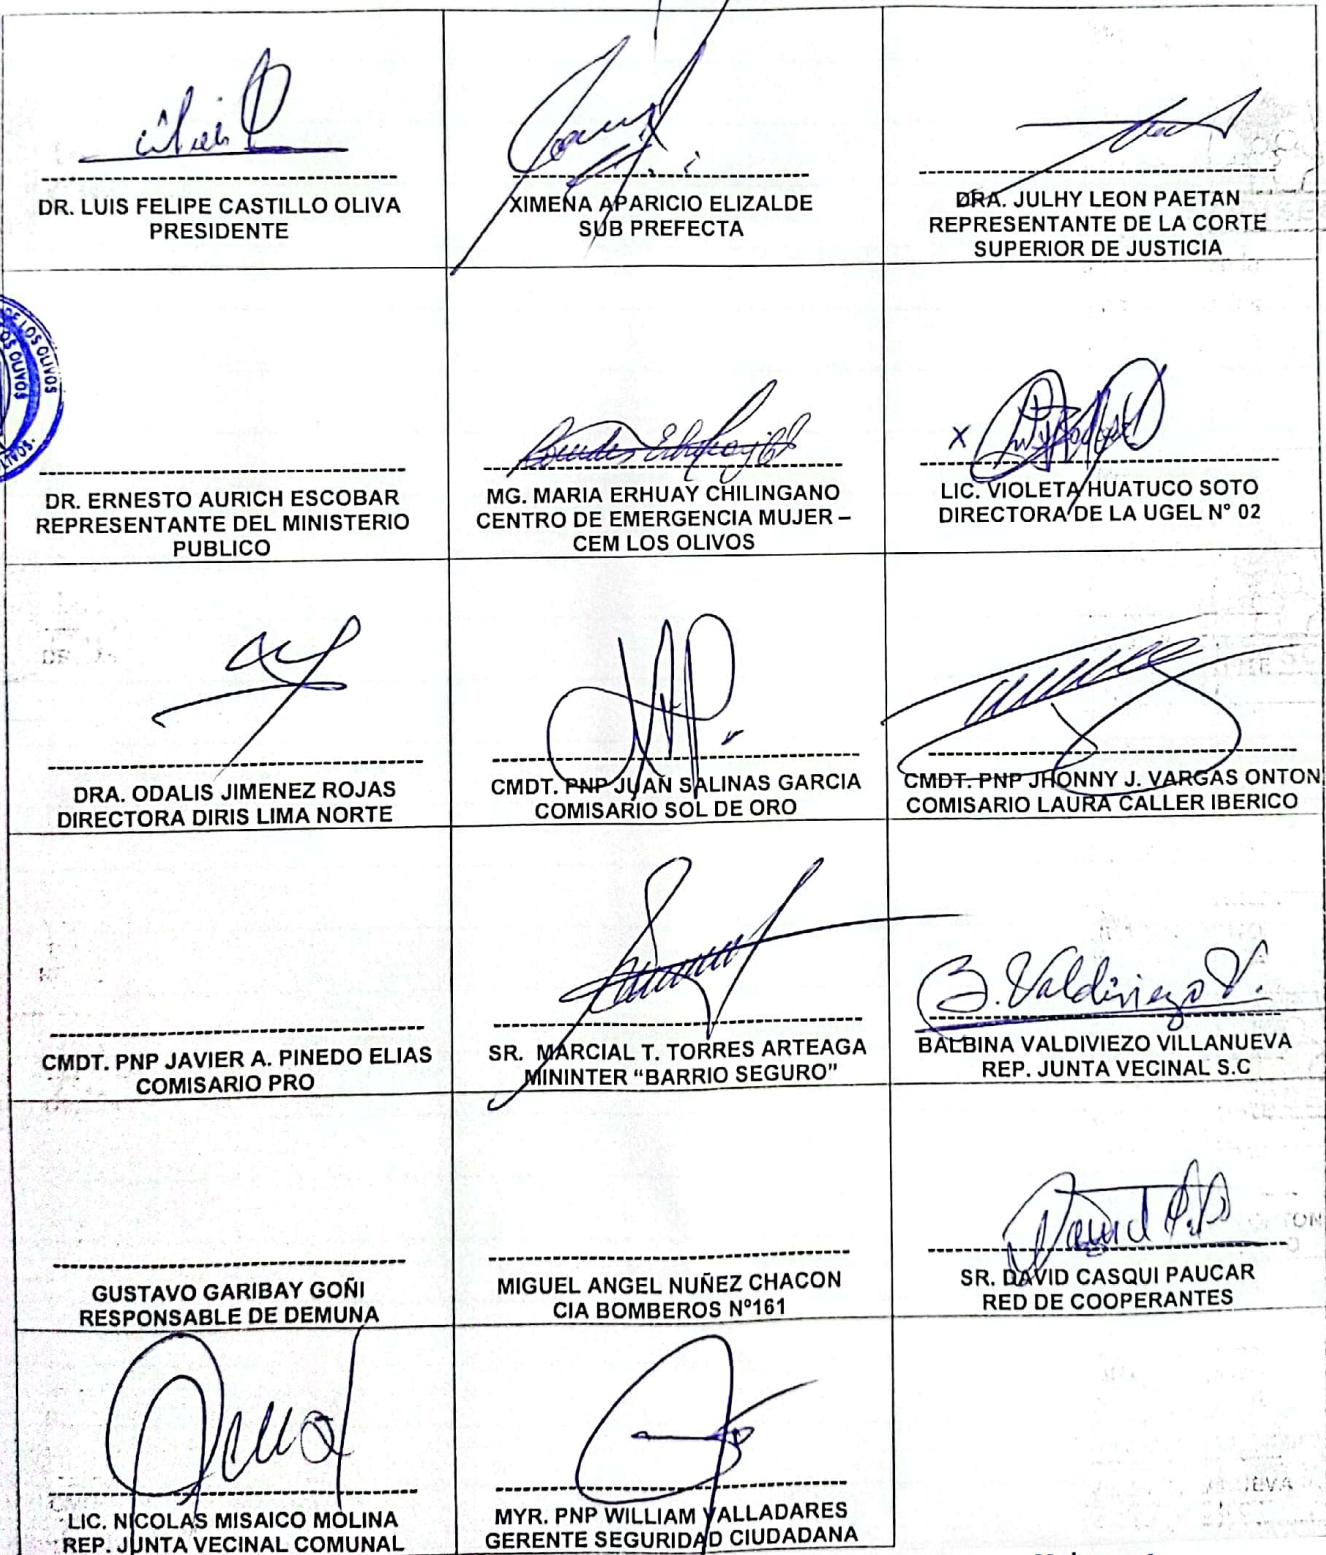 DR. LUIS FELIPE CASTILLO OLIVA
PRESIDENTE
XIMENA APARICIO ELIZALDE
SUB PREFECTA
DRA. JULHY LEON PAETAN
REPRESENTANTE DE LA CORTE
SUPERIOR DE JUSTICIA
DE LOS OLIVOS
OS OLIVOS
DR. ERNESTO AURICH ESCOBAR
REPRESENTANTE DEL MINISTERIO
PUBLICO
MG. MARIA ERHUAY CHILINGANO
CENTRO DE EMERGENCIA MUJER –
CEM LOS OLIVOS
X
LIC. VIOLETA HUATUCO SOTO
DIRECTORA DE LA UGEL N° 02
DRA. ODALIS JIMENEZ ROJAS
DIRECTORA DIRIS LIMA NORTE
CMDT. PNP JUAN SALINAS GARCIA
COMISARIO SOL DE ORO
CMDT. PNP JHONNY J. VARGAS ONTON
COMISARIO LAURA CALLER IBERICO
CMDT. PNP JAVIER A. PINEDO ELIAS
COMISARIO PRO
SR. MARCIAL T. TORRES ARTEAGA
MININTER “BARRIO SEGURO”
B. Valdiviezo V.
BALBINA VALDIVIEZO VILLANUEVA
REP. JUNTA VECINAL S.C
GUSTAVO GARIBAY GOÑI
RESPONSABLE DE DEMUNA
MIGUEL ANGEL NUÑEZ CHACON
CIA BOMBEROS Nº161
SR. DAVID CASQUI PAUCAR
RED DE COOPERANTES
LIC. NICOLAS MISAICO MOLINA
REP. JUNTA VECINAL COMUNAL
MYR. PNP WILLIAM VALLADARES
GERENTE SEGURIDAD CIUDADANA